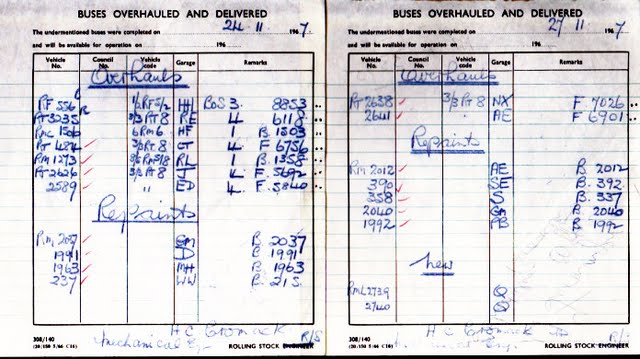 BUSES OVERHAULED AND DELIVERED
The undermentioned buses were completed on 24. 11. 196 7.
and will be available for operation on 196
Vehicle No. Council No. Vehicle code Garage Remarks
Overhauls
RF 556 1/2RF5/2 HH BoS 3. 8853
RT 3235 3/3 RT 8 RE 4 6118
RMC 1506 6RM6 HF 1 B. 1503
RT 484 3/3RT 8 CT 4 F 6756
RM 1273 RL 1 B. 1358
RT 2626 3/3 RT 8 T 4 F. 5692
2589 " ED 4. F. 5840
Repaints
RM. 2037 GM B. 2037
1991 D B. 1991
1963 MH B. 1963
237 WW B. 215
308/140
(20/150 5/66 C10)
H C Cromack
Mechanical Eng. R/S
ROLLING STOCK ENGINEER
BUSES OVERHAULED AND DELIVERED
The undermentioned buses were completed on 27 . 11 196 7
and will be available for operation on 196
Vehicle No. Council No. Vehicle code Garage Remarks
Overhauls
RT 2638 3/3 RT 8 NX F 7026
2641 " AE F 6901
Repaints
RM 2012 AE B. 2012
390 SE B. 392
358 S B. 337
2040 GM B. 2040
1992 PB B. 1992
New
RML 2739 Q
2740 Q
308/140
(20/150 5/66 C10)
H C Cromack
ROLLING STOCK ENGINEER